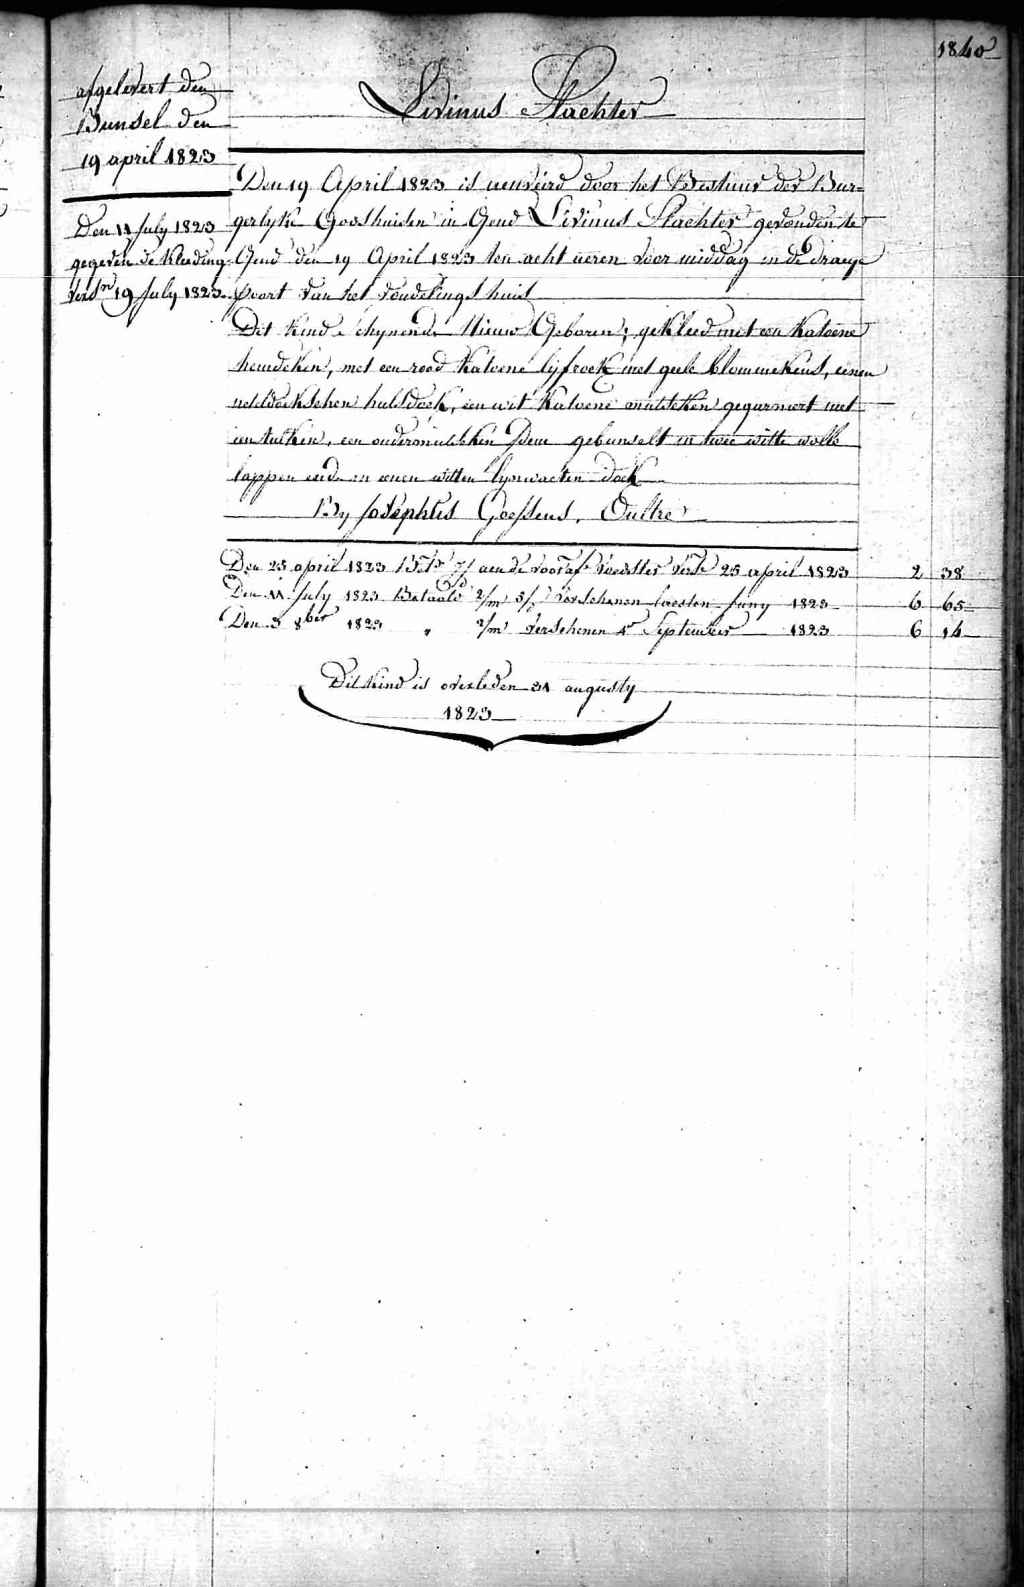 1840
Livinus Slachter
afgelevert den
Bunsel den
19 april 1823
Den 11 July 1823
gegeven de Kleeding
versn 19 July 1823
Den 19 April 1823 is aenveird door het Bestuur der Bur-
gerlyke Godshuisen in Gend Livinus Slachter gevonden te
Gend den 19 April 1823 ten acht ueren voor middag in de draeye
poort van het vondelings huis
Dit Kind schynende Nieuw Geboren; gekleed met een Katoene
hemdeken, met een rood Katoene lyfrock met geele blommekens, eenen
neteldoekschen halsdoek, een wit Katoene mutseken gegarniert met
een tulken, een ondermutsken Idem gebunselt in twee witte wolle
lappen ende in eenen witten lynwaeten doek
By Josephus Goessens, Oultre
Den 25 april 1823 bete 7/ aen de vooraf voedster verle 25 april 1823 2 38
Den 11 July 1823 Betaald 2/m 5/d verschenen laesten Juny 1823 6 65
Den 3 8ber 1823 " 2/m verschenen 1e September 1823 6 14
Dit Kind is overleden 31 augusty
1823